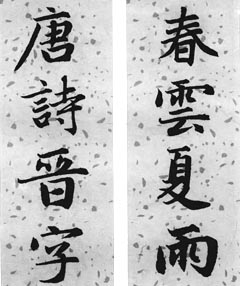 春雲夏雨
唐詩晉字